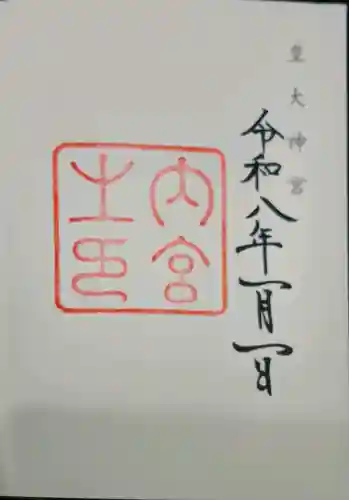 皇大神宮
令和八年一月一日
内宮
之印